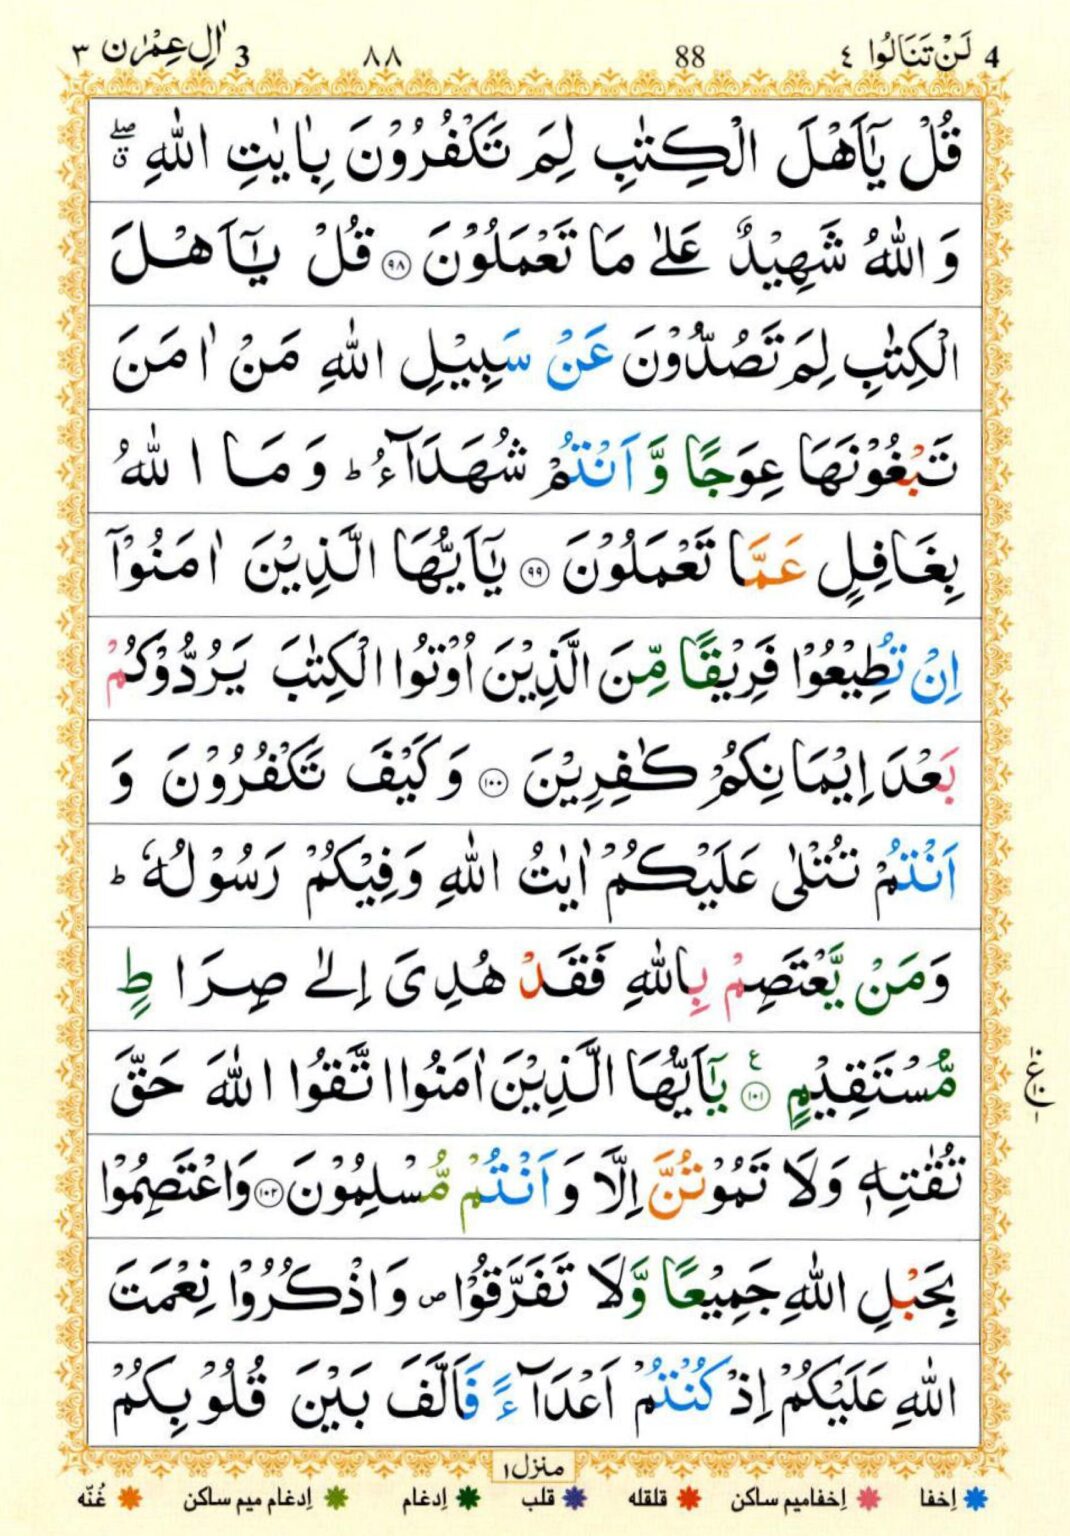 4 لَنْ تَنَالُوا ٤ 88 ٨٨ 3 اٰلِ عِمْرٰن ٣
قُلْ یٰۤاَهْلَ الْكِتٰبِ لِمَ تَكْفُرُوْنَ بِاٰیٰتِ اللّٰهِ ۖۗ
وَ اللّٰهُ شَهِیْدٌ عَلٰى مَا تَعْمَلُوْنَ ﴿٩٨﴾ قُلْ یٰۤاَهْلَ
الْكِتٰبِ لِمَ تَصُدُّوْنَ عَنْ سَبِیْلِ اللّٰهِ مَنْ اٰمَنَ
تَبْغُوْنَهَا عِوَجًا وَّ اَنْتُمْ شُهَدَآءُ ؕ وَ مَا اللّٰهُ
بِغَافِلٍ عَمَّا تَعْمَلُوْنَ ﴿٩٩﴾ یٰۤاَیُّهَا الَّذِیْنَ اٰمَنُوْۤا
اِنْ تُطِیْعُوْا فَرِیْقًا مِّنَ الَّذِیْنَ اُوْتُوا الْكِتٰبَ یَرُدُّوْكُمْ
بَعْدَ اِیْمَانِكُمْ كٰفِرِیْنَ ﴿١٠٠﴾ وَ كَیْفَ تَكْفُرُوْنَ وَ
اَنْتُمْ تُتْلٰى عَلَیْكُمْ اٰیٰتُ اللّٰهِ وَ فِیْكُمْ رَسُوْلُهٗ ؕ
وَ مَنْ یَّعْتَصِمْ بِاللّٰهِ فَقَدْ هُدِیَ اِلٰى صِرَاطٍ
مُّسْتَقِیْمٍ ﴿١٠١﴾ ع یٰۤاَیُّهَا الَّذِیْنَ اٰمَنُوا اتَّقُوا اللّٰهَ حَقَّ
تُقٰتِهٖ وَ لَا تَمُوْتُنَّ اِلَّا وَ اَنْتُمْ مُّسْلِمُوْنَ ﴿١٠٢﴾ وَ اعْتَصِمُوْا
بِحَبْلِ اللّٰهِ جَمِیْعًا وَّ لَا تَفَرَّقُوْا ۪ وَ اذْكُرُوْا نِعْمَتَ
اللّٰهِ عَلَیْكُمْ اِذْ كُنْتُمْ اَعْدَآءً فَاَلَّفَ بَیْنَ قُلُوْبِكُمْ
منزل ١
اِخفا اِخفامیم ساکن قلقله قلب اِدغام اِدغام میم ساکن غُنّه